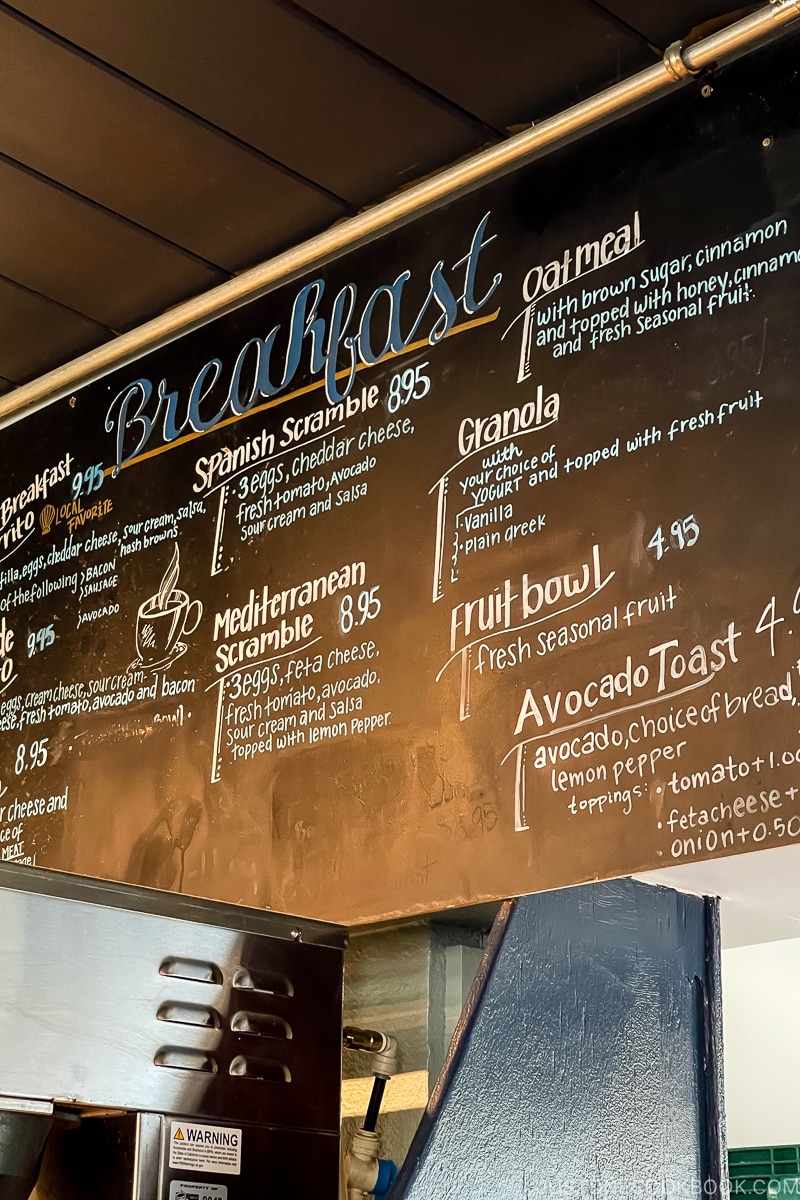 Breakfast
Breakfast
9.95
LOCAL
FAVORITE
eggs, cheddar cheese, sour cream, salsa,
hash browns
of the following
BACON
SAUSAGE
AVOCADO
9.95
eggs, cream cheese, sour cream
fresh tomato, avocado and bacon
8.95
cheese and
MEAT
Spanish Scramble 8.95
• 3 eggs, cheddar cheese,
fresh tomato, Avocado
sour cream and salsa
Mediterranean
Scramble 8.95
• 3 eggs, feta cheese,
fresh tomato, avocado,
sour cream and salsa
topped with lemon Pepper
Oatmeal
with brown sugar, cinnamon
and topped with honey, cinnamo
and fresh seasonal fruit.
Granola
with
your choice of
YOGURT and topped with fresh fruit
• Vanilla
• plain greek
Fruit bowl 4.95
fresh seasonal fruit
Avocado Toast 4.
avocado, choice of bread,
lemon pepper
toppings: • tomato +1.00
• feta cheese +
onion +0.50
WARNING
PROPERTY OF